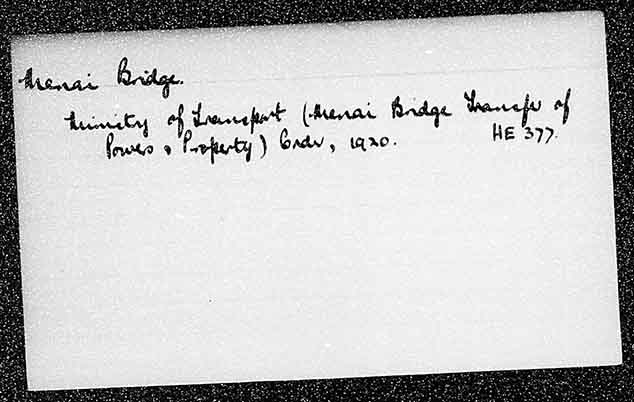 Menai Bridge.
Ministry of Transport (Menai Bridge Transfer of
Powers & Property) Order, 1920. HE 377.